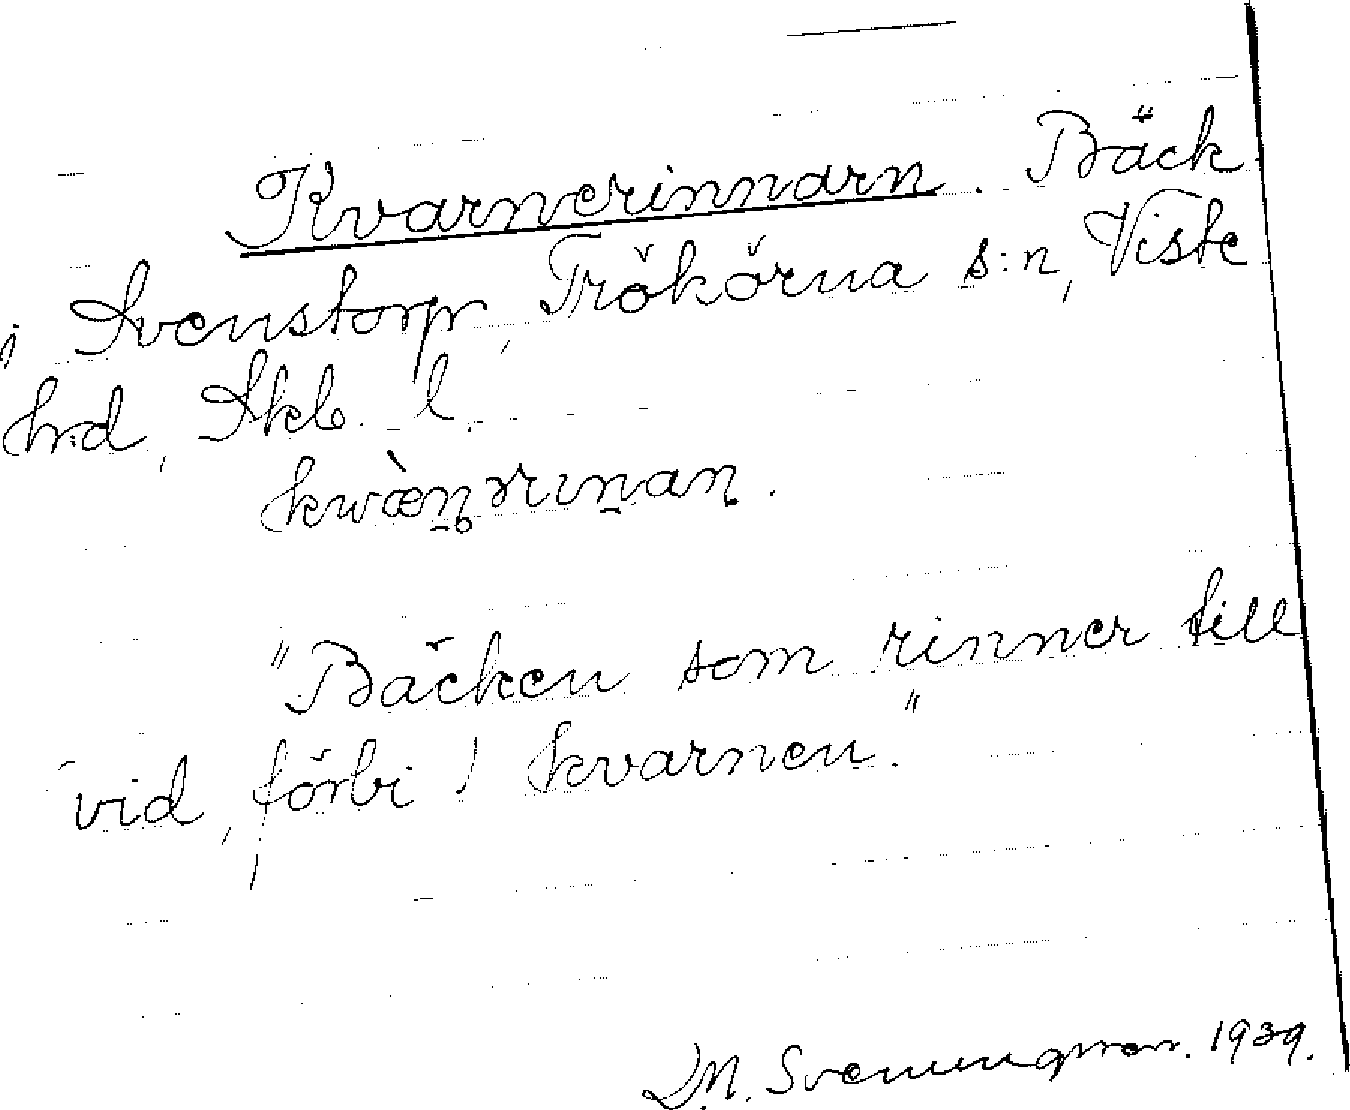 Kvarnerinnarn. Bäck
i Svenstorp, Trökörna s:n, Viste
hrd, Skb. l.
kwæ̀n̥rınan.
"Bäcken som rinner till
vid, förbi / kvarnen."
1939.